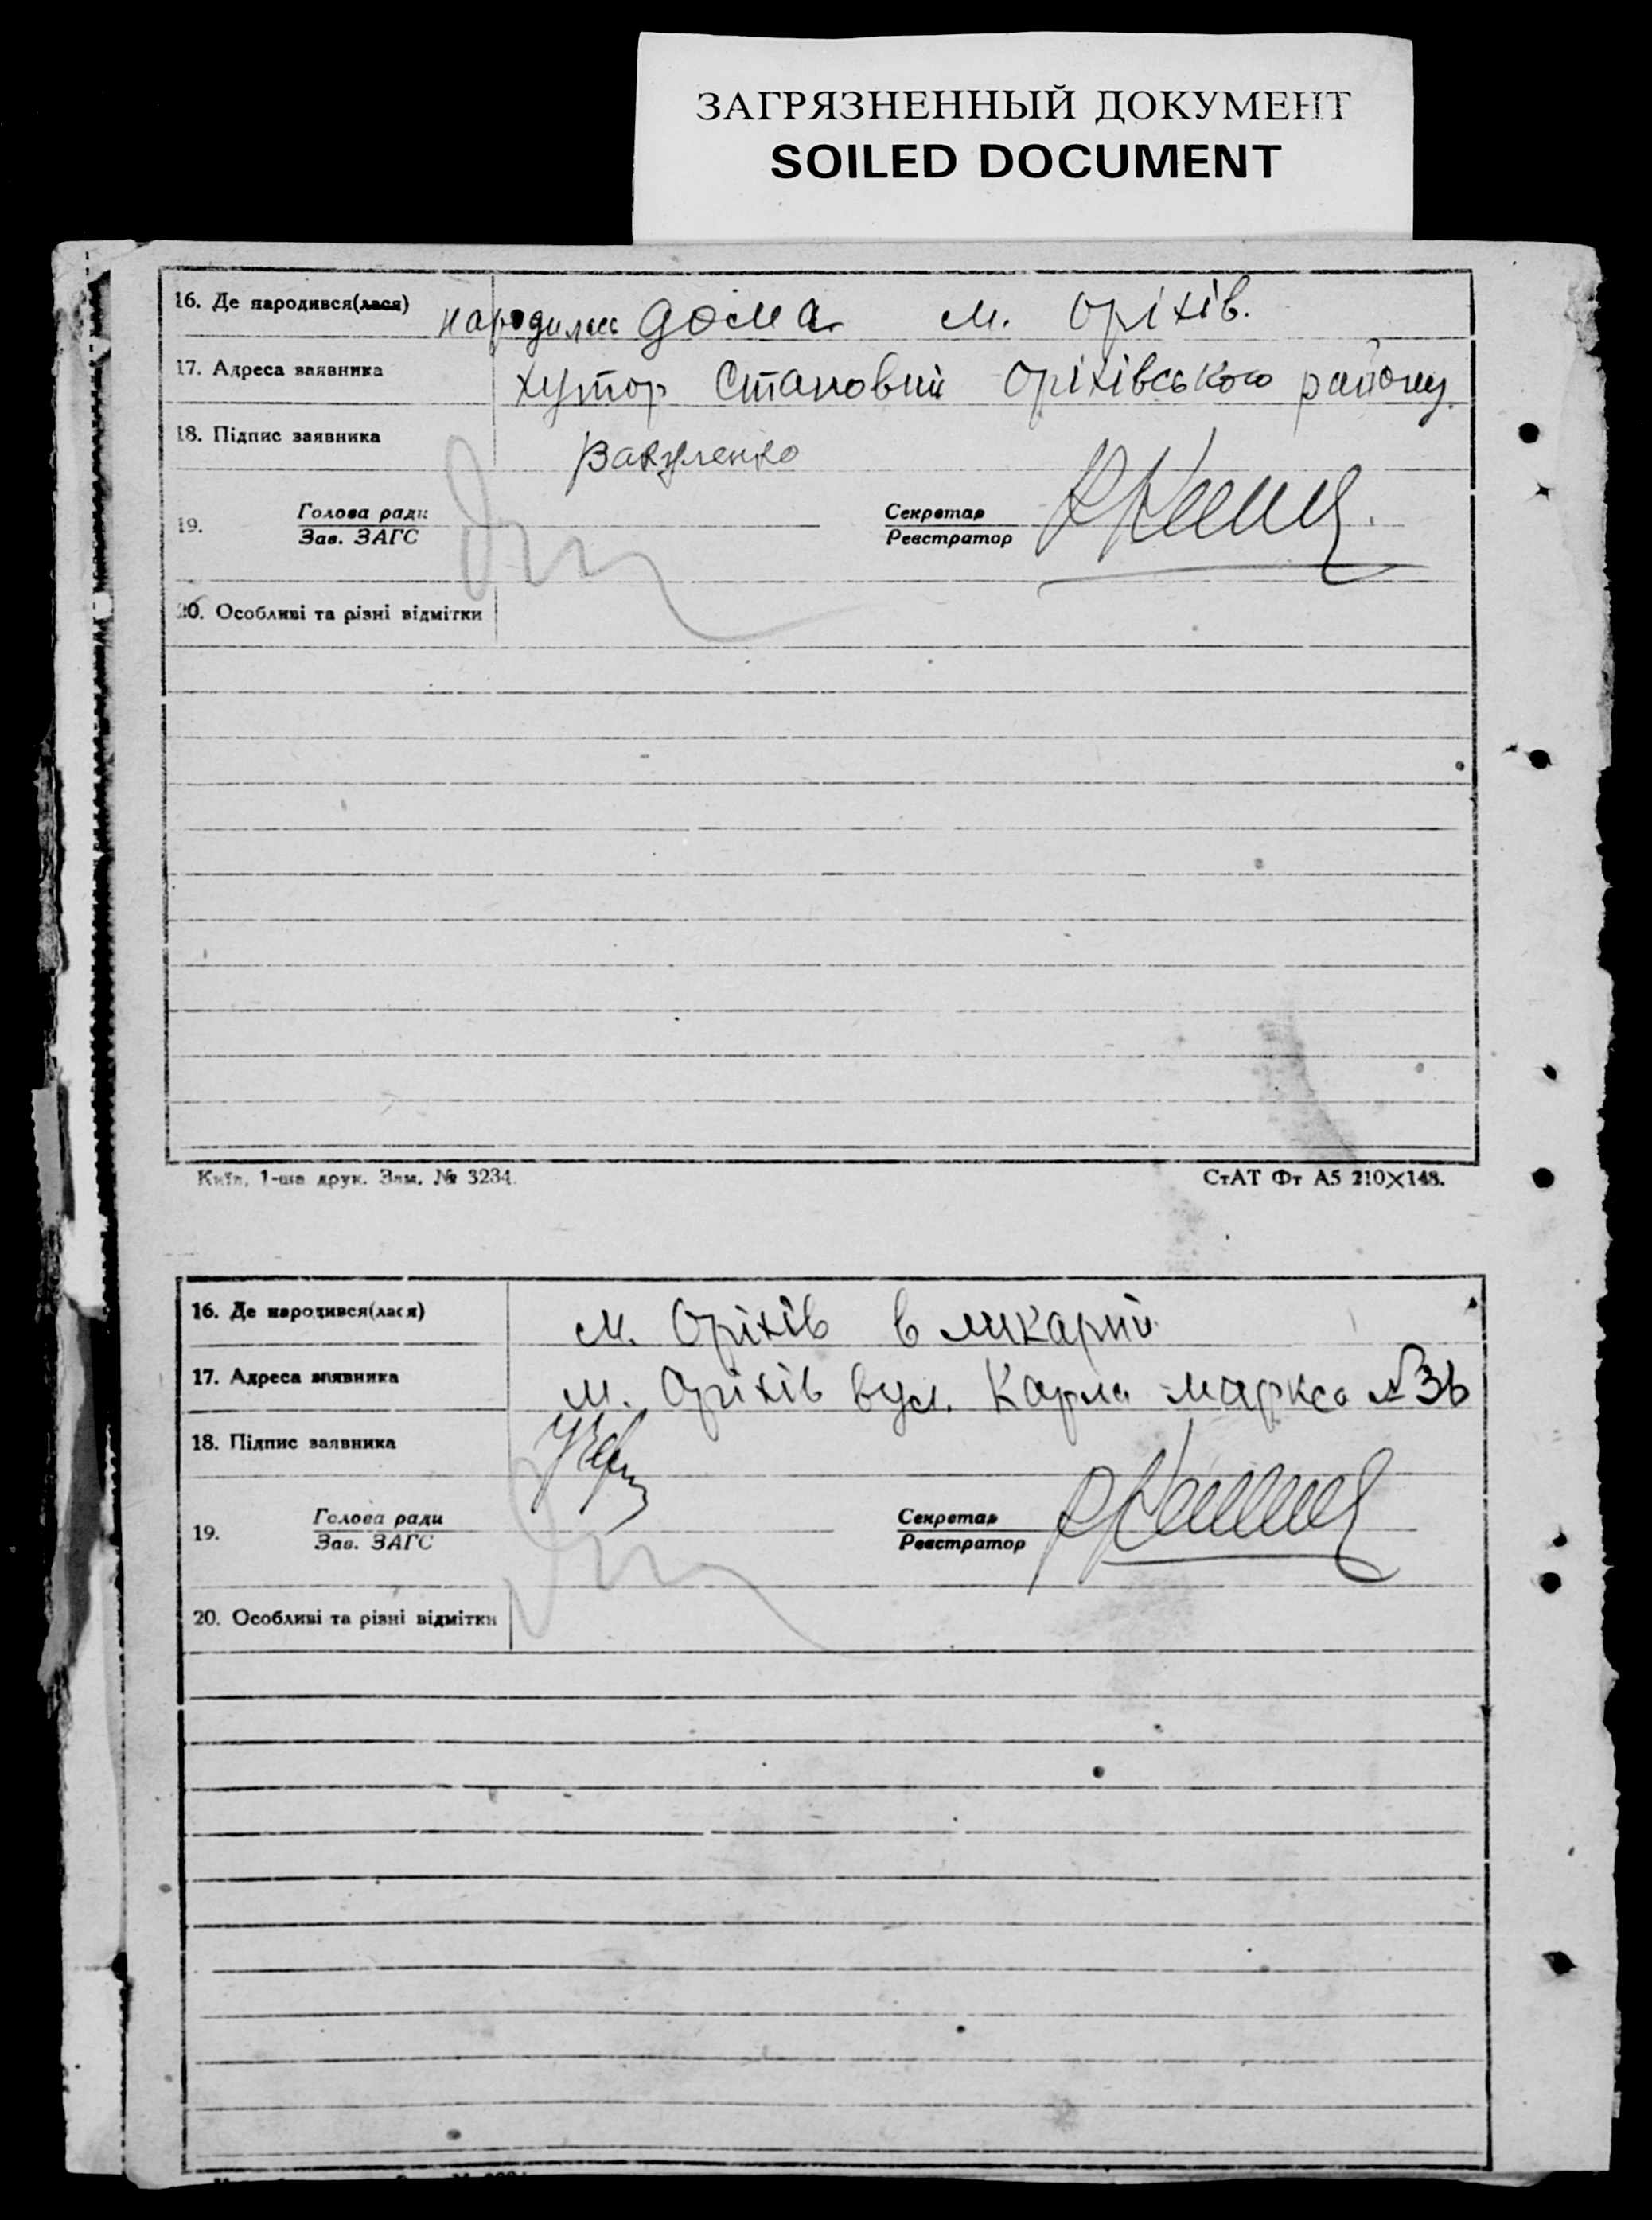 ЗАГРЯЗНЕННЫЙ ДОКУМЕНТ
SOILED DOCUMENT
16. Де народився(лася) народилась дома м. Оріхів.
17. Адреса заявника хутор Становий Оріхівського району
18. Підпис заявника Вакуленко
19. Голова ради Секретар
Зав. ЗАГС Реєстратор
20. Особливі та різні відмітки
Київ, 1-ша друк. Зам. № 3234. СтАТ Фт А5 210×148.
16. Де народився(лася) м. Оріхів в ликарні
17. Адреса заявника м. Оріхів вул. Карла Маркса № 36
18. Підпис заявника
19. Голова ради Секретар
Зав. ЗАГС Реєстратор
20. Особливі та різні відмітки